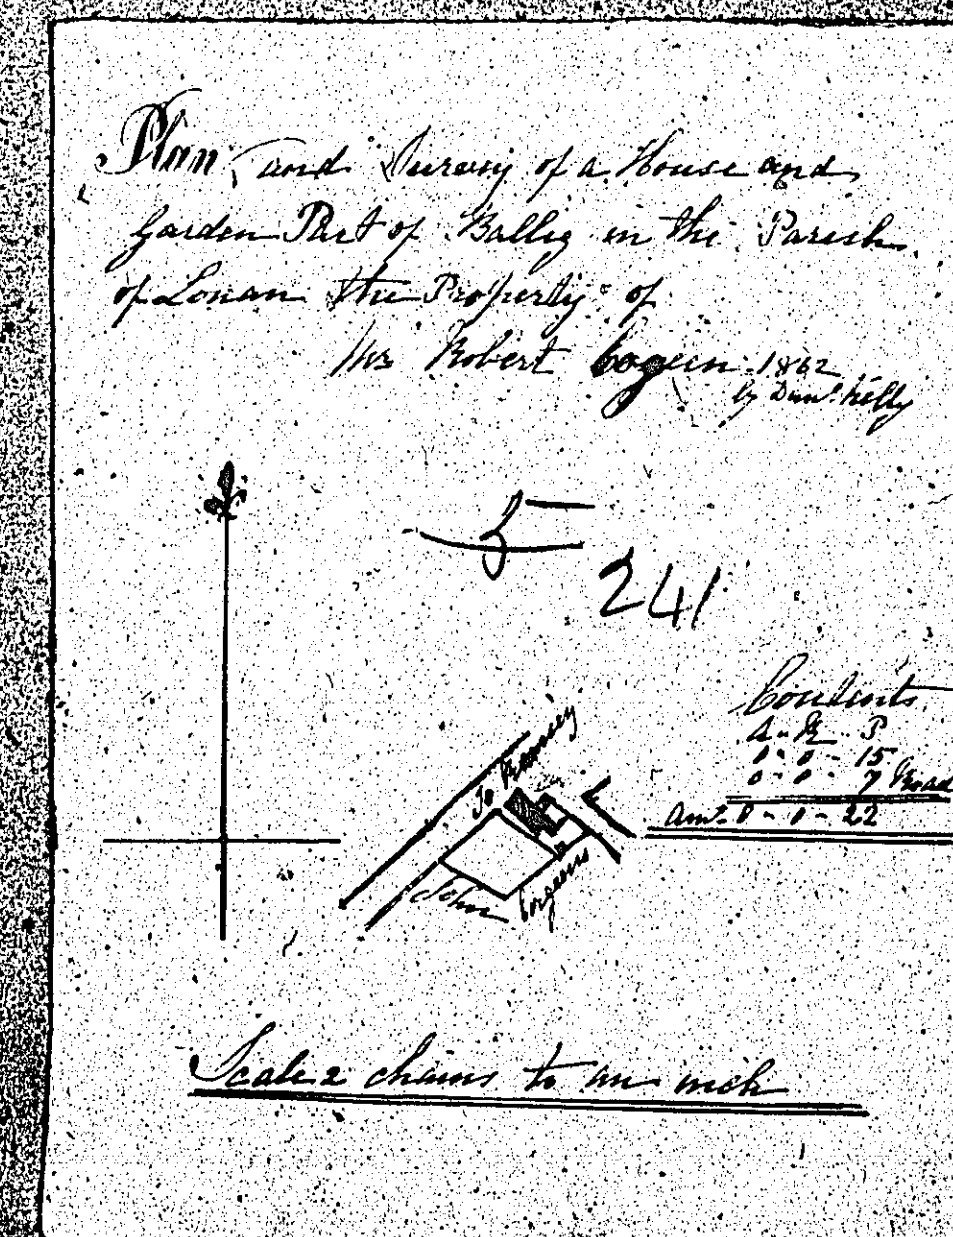 Plan and Survey of a House and
Garden Part of Ballig in the Parish
of Lonan the Property of
Mr Robert Cogeen 1862
by Danl. Kelly
241
Contents
A - R - P
0 - 0 - 15
0 - 0 - 7 Road
Amt. 0 - 0 - 22
To Ramsey
John
Corgeens
Scale 2 chains to an inch